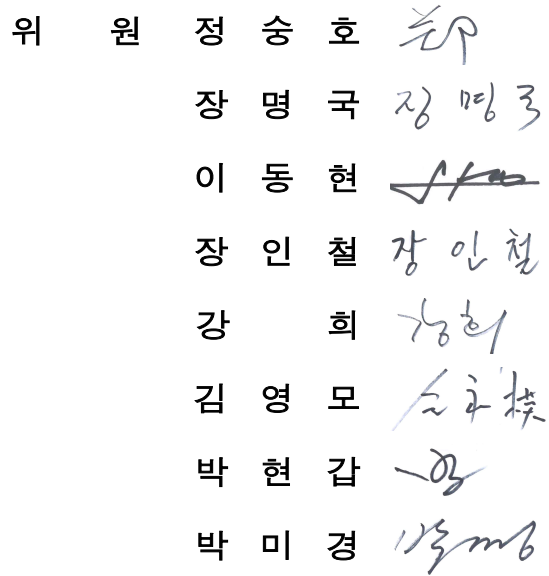 위 원 정 숭 호 鄭
장 명 국 장 명 국
이 동 현
장 인 철 장 인 철
강 희 강 희
김 영 모 金 永 模
박 현 갑
박 미 경